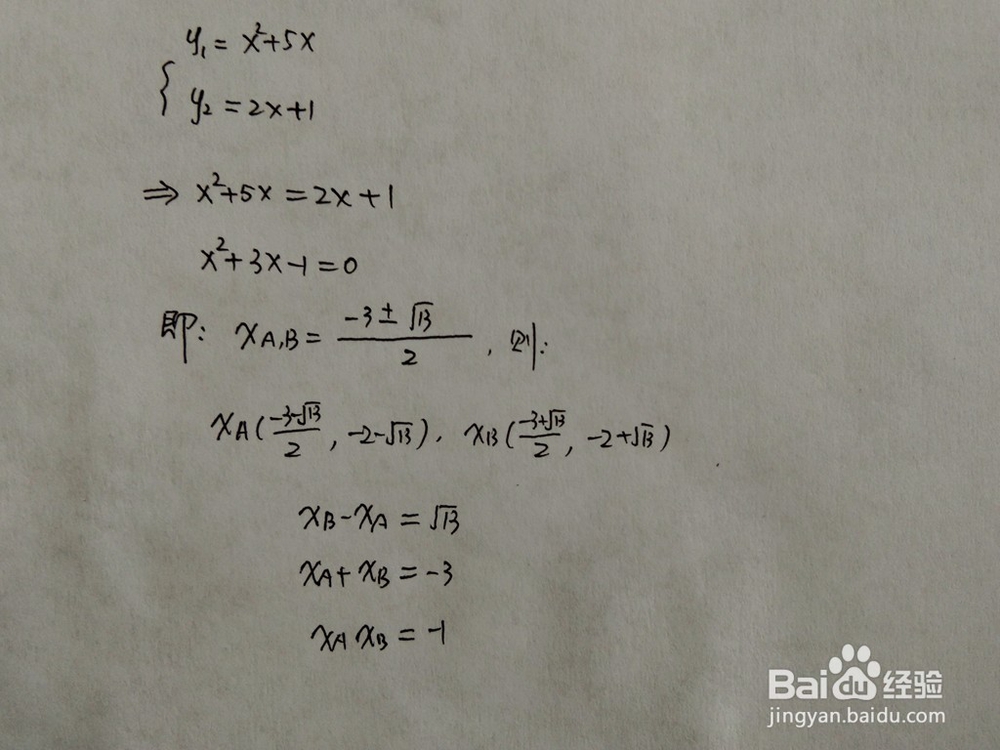 y₁ = x²+5x
{ y₂ = 2x+1
⇒ x²+5x = 2x+1
x²+3x-1=0
即: x_A,B = (-3±√13)/2 , 则:
x_A((-3-√13)/2 , -2-√13), x_B((-3+√13)/2 , -2+√13)
x_B-x_A = √13
x_A+x_B = -3
x_A x_B = -1
Baidu经验
jingyan.baidu.com